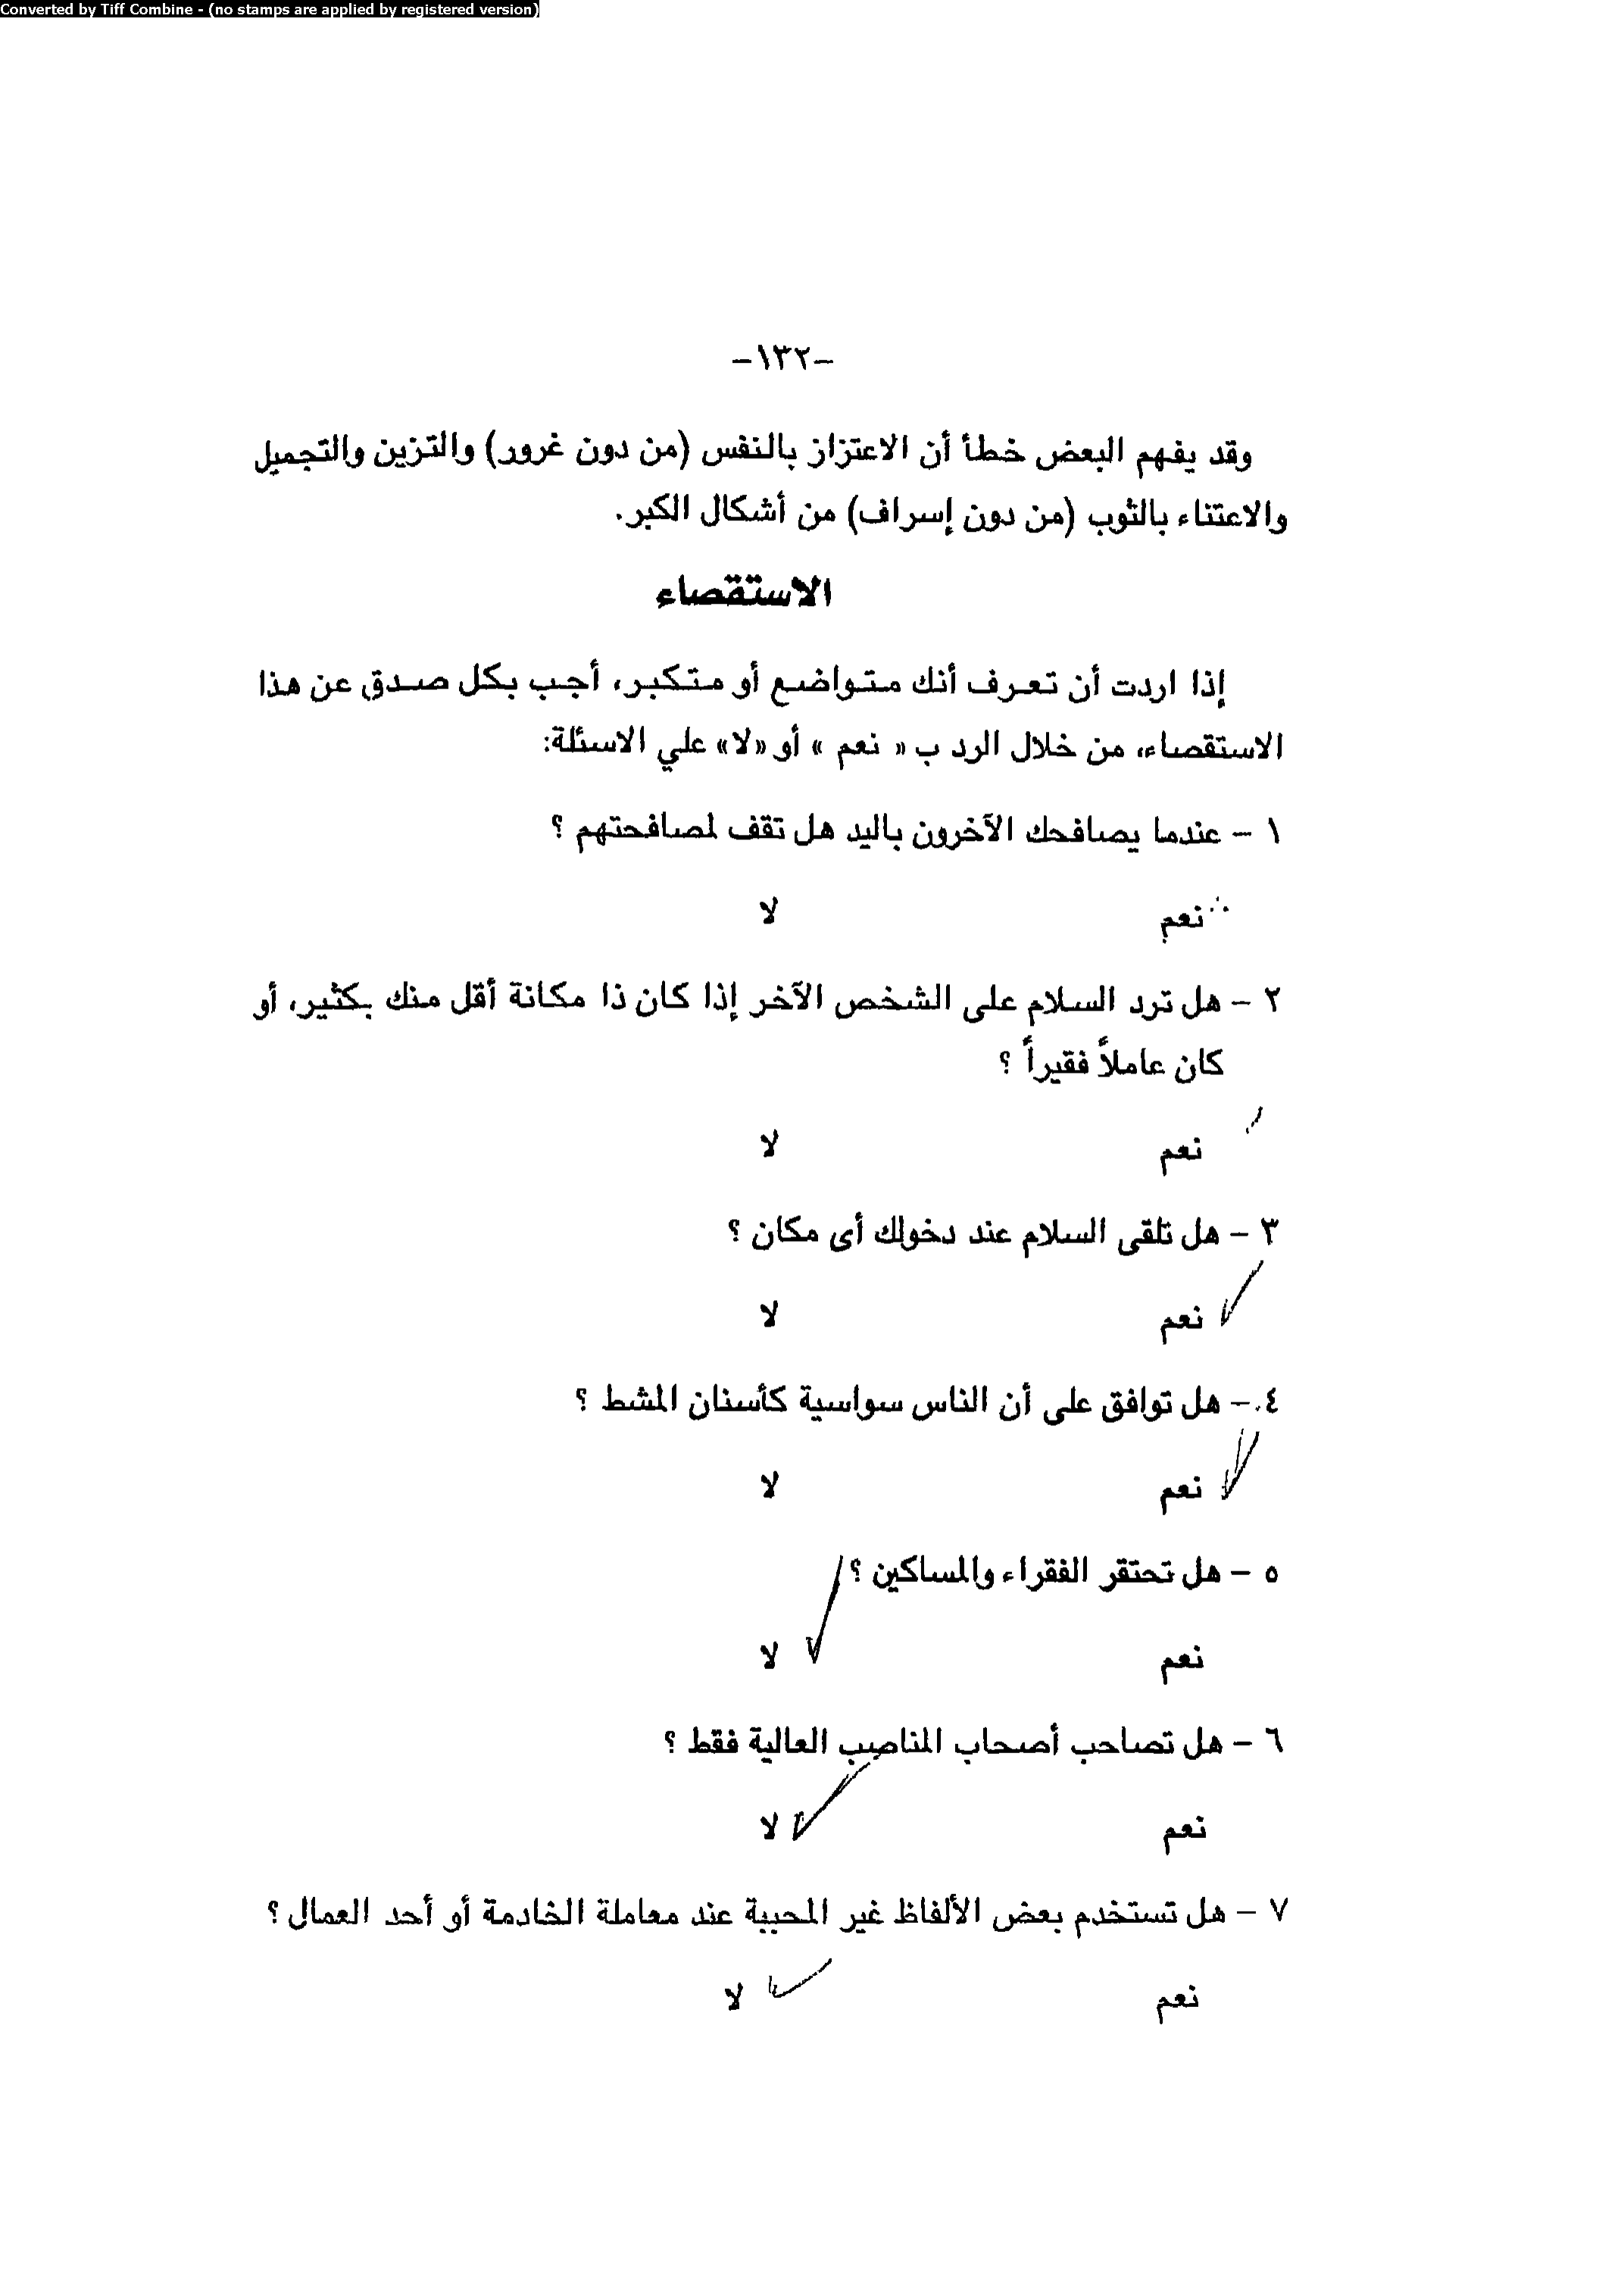 Converted by Tiff Combine - (no stamps are applied by registered version)
-١٣٢-
وقد يفهم البعض خطأ أن الاعتزاز بالنفس (من دون غرور) والتزين والتجميل
والاعتناء بالثوب (من دون إسراف) من أشكال الكبر.
الاستقصاء
إذا اردت أن تعرف أنك متواضع أو متكبر، أجب بكل صدق عن هذا
الاستقصاء، من خلال الرد ب « نعم » أو «لا» علي الاسئلة:
١ - عندما يصافحك الآخرون باليد هل تقف لمصافحتهم ؟
نعم لا
٢ - هل ترد السلام على الشخص الآخر إذا كان ذا مكانة أقل منك بكثير، أو
كان عاملاً فقيراً ؟
نعم لا
٣ - هل تلقى السلام عند دخولك أى مكان ؟
نعم لا
٤ - هل توافق على أن الناس سواسية كأسنان المشط ؟
نعم لا
٥ - هل تحتقر الفقراء والمساكين ؟
نعم لا
٦ - هل تصاحب أصحاب المناصب العالية فقط ؟
نعم لا
٧ - هل تستخدم بعض الألفاظ غير المحببة عند معاملة الخادمة أو أحد العمال ؟
نعم لا